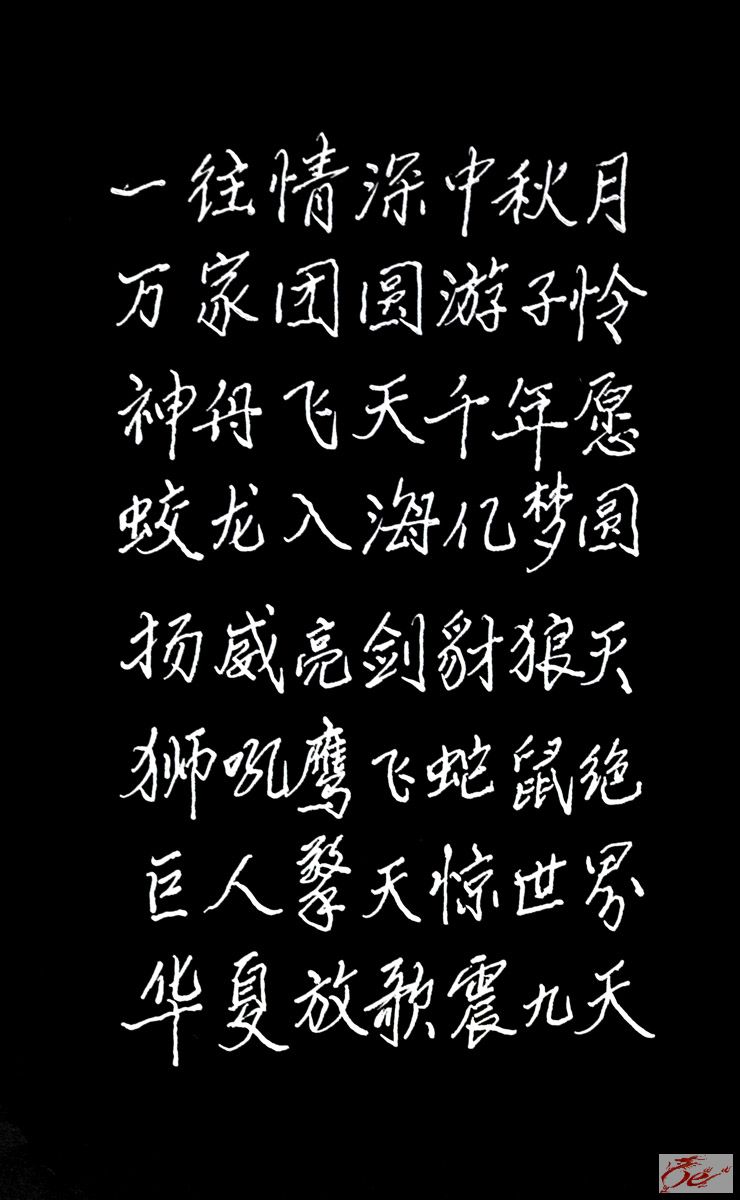 一往情深中秋月
万家团圆游子怜
神舟飞天千年愿
蛟龙入海亿梦圆
扬威亮剑豺狼灭
狮吼鹰飞蛇鼠绝
巨人擎天惊世界
华夏放歌震九天